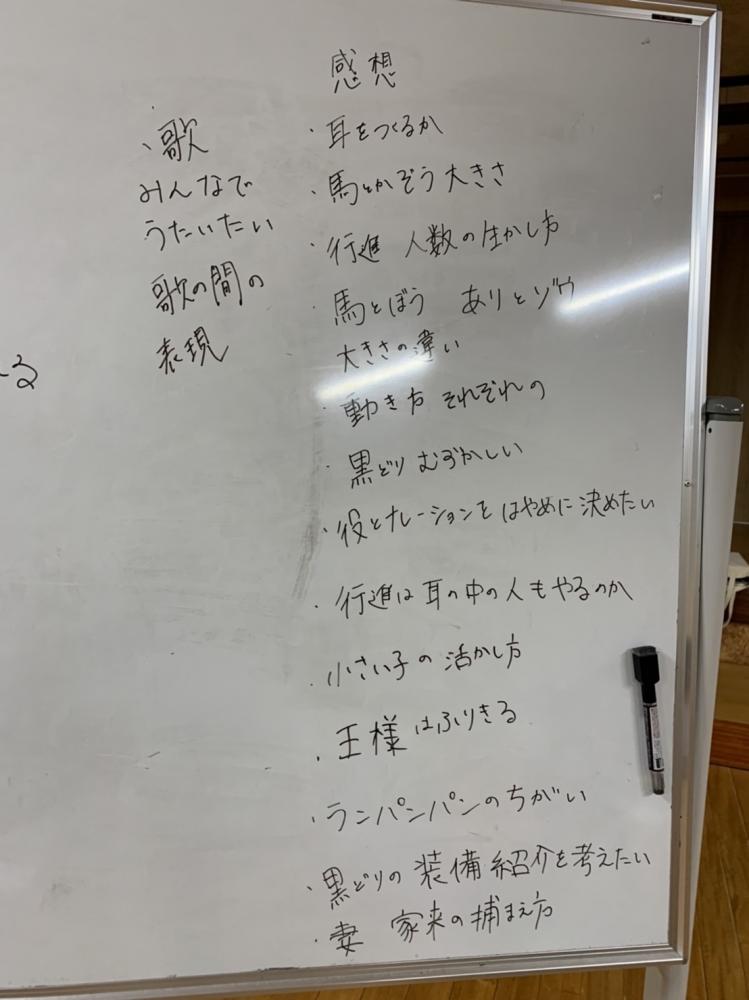 感想
・耳をつくるか
・馬とかぞう大きさ
・行進 人数の生かし方
・馬とぼう ありとゾウ
大きさの違い
・動き方 それぞれの
・黒どり むずかしい
・役とナレーションを はやめに決めたい
・行進は耳の中の人もやるのか
・小さい子の活かし方
・王様はふりきる
・ランパンパンのちがい
・黒どりの装備紹介を考えたい
・妻 家来の捕まえ方
・歌
みんなで
うたいたい
歌の間の
表現
る